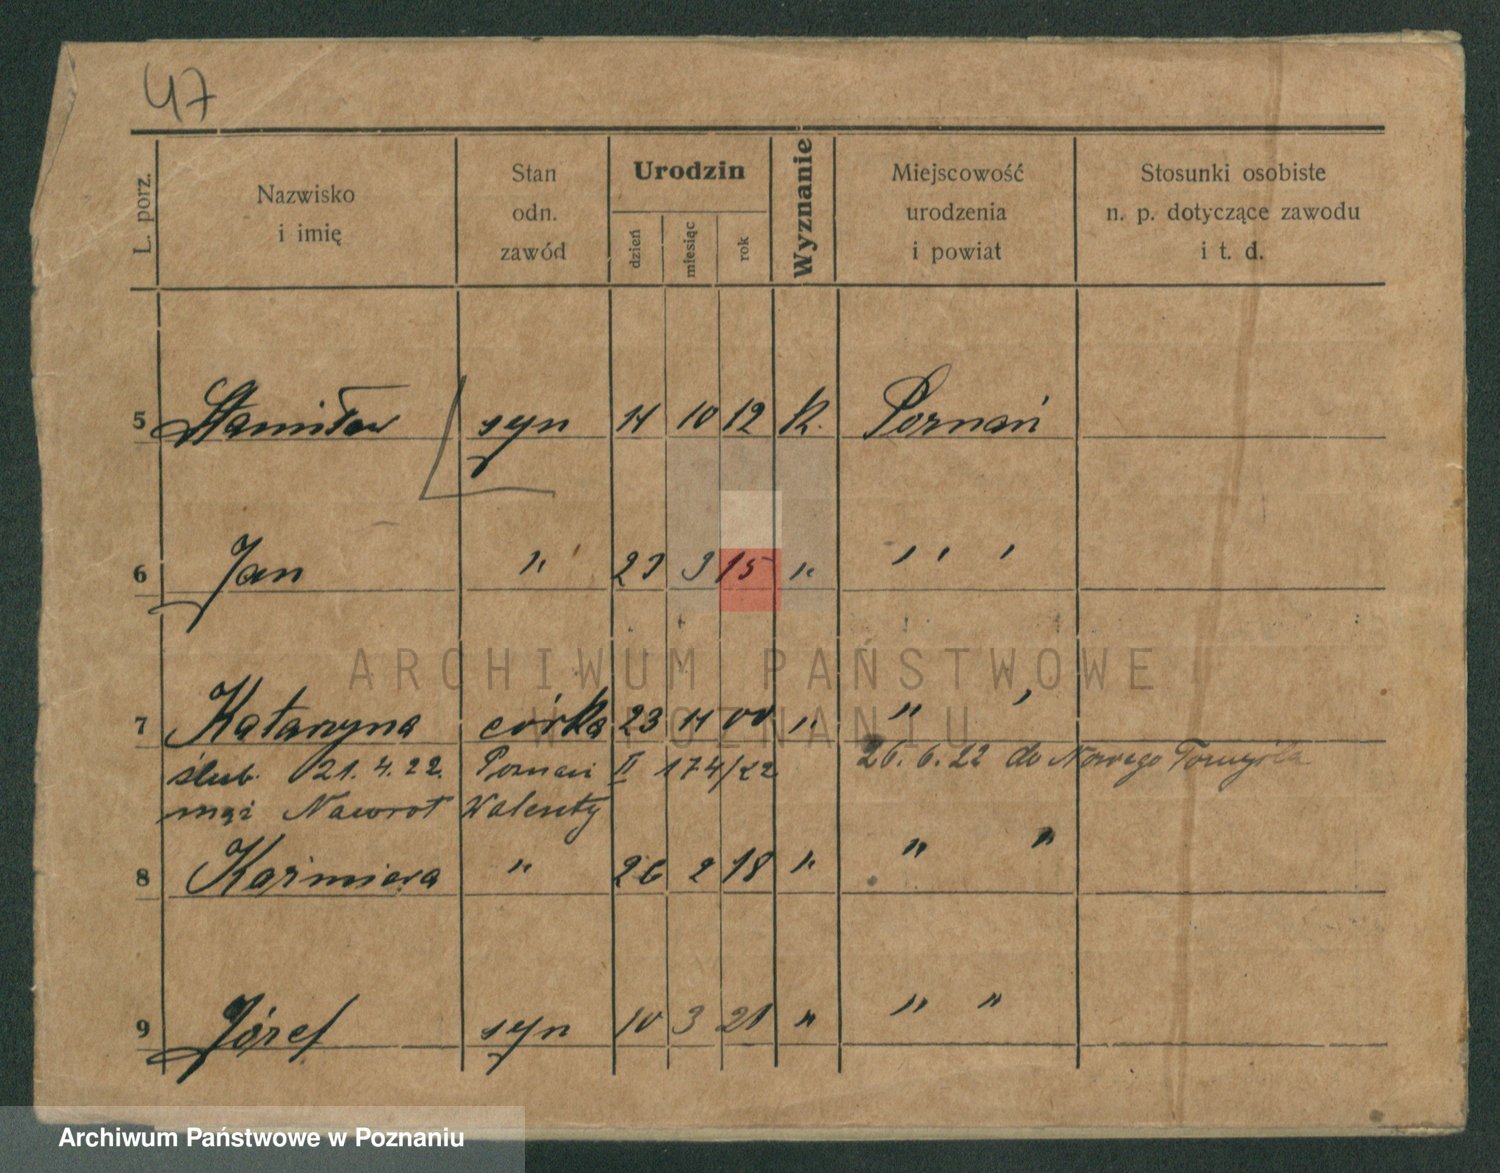 47
L. porz.
Nazwisko
i imię
Stan
odn.
zawód
Urodzin
dzień
miesiąc
rok
Wyznanie
Miejscowość
urodzenia
i powiat
Stosunki osobiste
n. p. dotyczące zawodu
i t. d.
5 Stanisław syn 14 10 12 k. Poznań
6 Jan " 23 3 15 " " "
ARCHIWUM PAŃSTWOWE
W POZNANIU
7 Katarzyna córka 23 11 00 " " "
ślub. 21. 4. 22. Poznań II 174/22 26. 6. 22 do Nowego Tomyśla
mąż Nawrot Walenty
8 Kaźmiera " 26 2 18 " " "
9 Józef syn 10 3 21 " " "
Archiwum Państwowe w Poznaniu